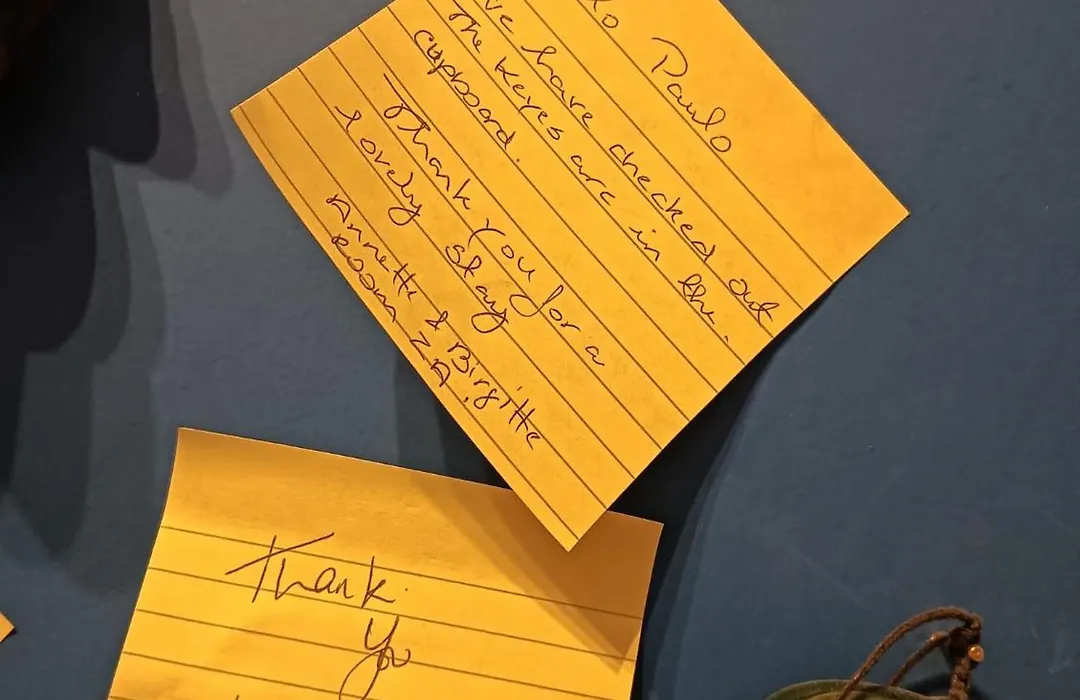 lo Paulo
ve have checked out
The keyes are in the.
cupboard.
Thank you for a
lovely stay
Annette & Birgitte
Room 2A.
Thank.
You